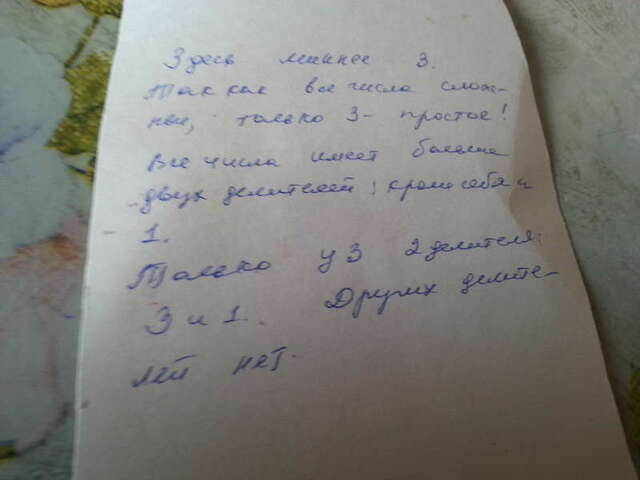 Здесь лишнее 3.
Так как все числа слож-
ные, только 3- простое!
Все числа имеет больше
двух делителей, кроме себя и
1.
Только у 3 2 делителя:
3 и 1. Других делите-
лей нет.